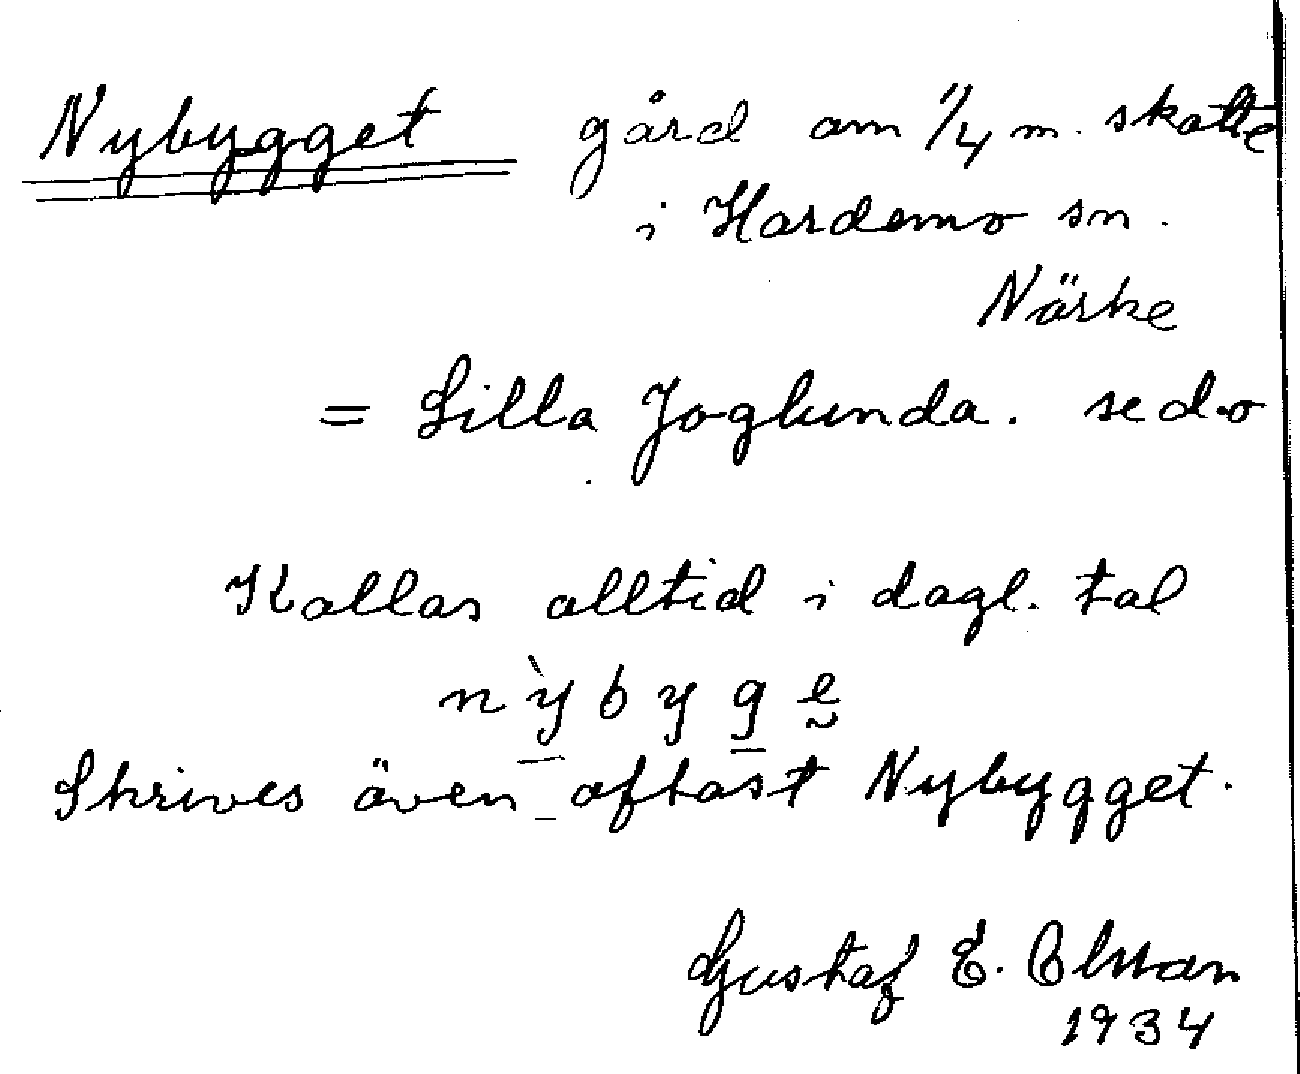 Nybygget gård om 1/4 m. skatte
i Hardemo sn.
Närke
= Lilla Joglunda. se d.o
Kallas alltid i dagl. tal
nỳbyge
Skrives även oftast Nybygget.
Gustaf E. Olsson
1934